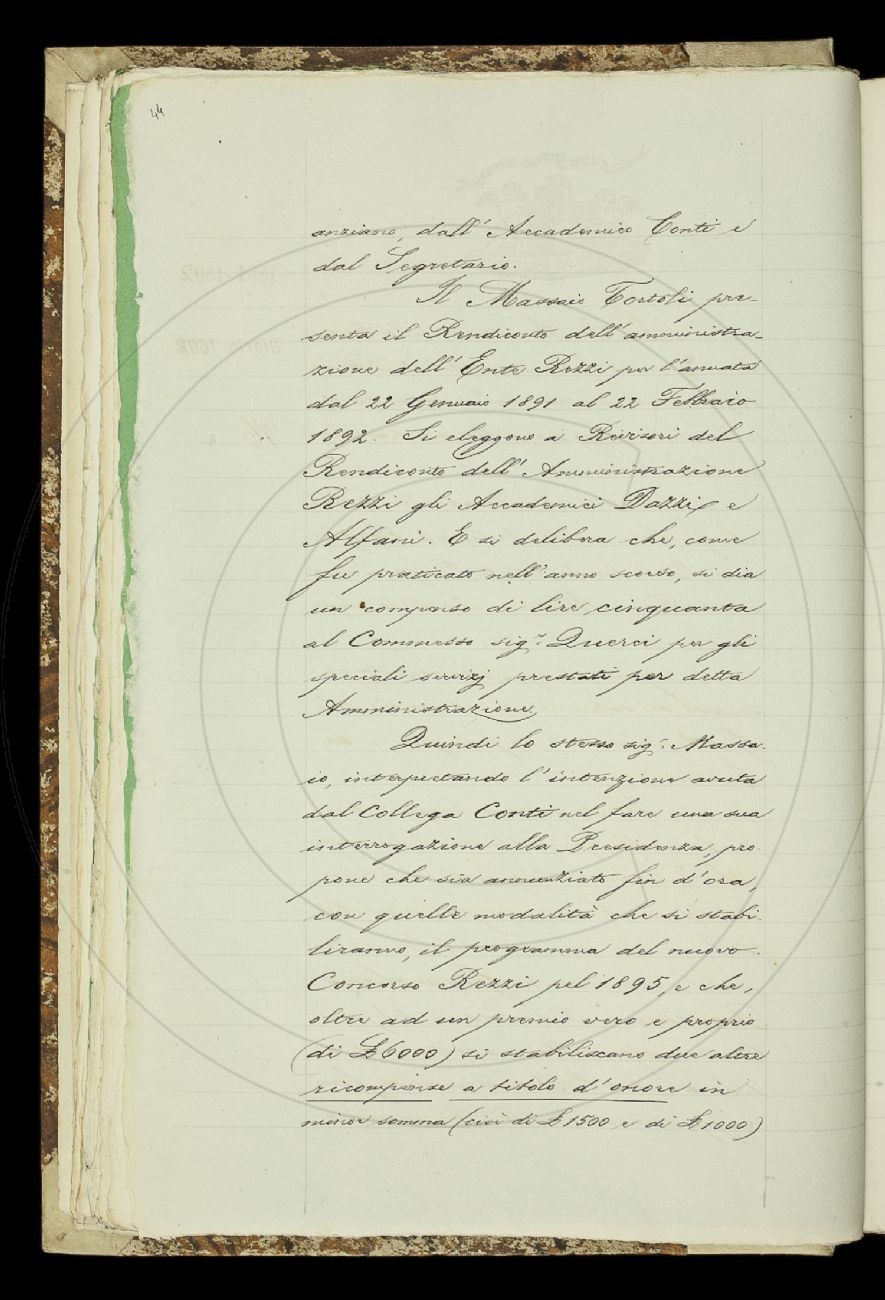 44
anziano, dall' Accademico Conti e
dal Segretario.
Il Massaio Tortoli pre-
senta il Rendiconto dell' amministra-
zione dell' Ente Rezzi per l'annata
dal 22 Gennaio 1891 al 22 Febbraio
1892. Si eleggono a Revisori del
Rendiconto dell' Amministrazione
Rezzi gli Accademici Dazzi e
Alfani. E si delibera che, come
fu praticato nell'anno scorso, si dia
un compenso di lire cinquanta
al Commesso sigr. Querci per gli
speciali servizj prestati per detta
Amministrazione
Quindi lo stesso sigr. Massa-
io, interpetrando l'intenzione avuta
dal Collega Conti nel fare una sua
interrogazione alla Presidenza, pro-
pone che sia annunziato fin d'ora,
con quelle modalità che si stabi-
liranno, il programma del nuovo
Concorso Rezzi pel 1895, e che,
oltre ad un premio vero e proprio
(di £6000) si stabiliscano due altre
ricompense a titolo d'onore in
minor somma (cioè di £1500 e di £1000)